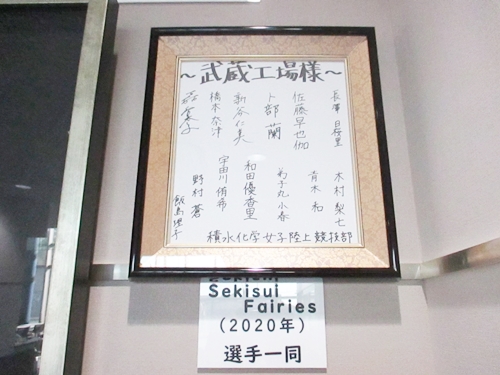 ～武蔵工場様～
佐藤早也伽
卜部蘭
新谷仁美
橋本奈津
森智香子
木村梨七
青木和
弟子丸小春
和田優香里
宇田川侑希
野村蒼
飯島理子
積水化学女子陸上競技部
Sekisui
Fairies
(2020年)
選手一同